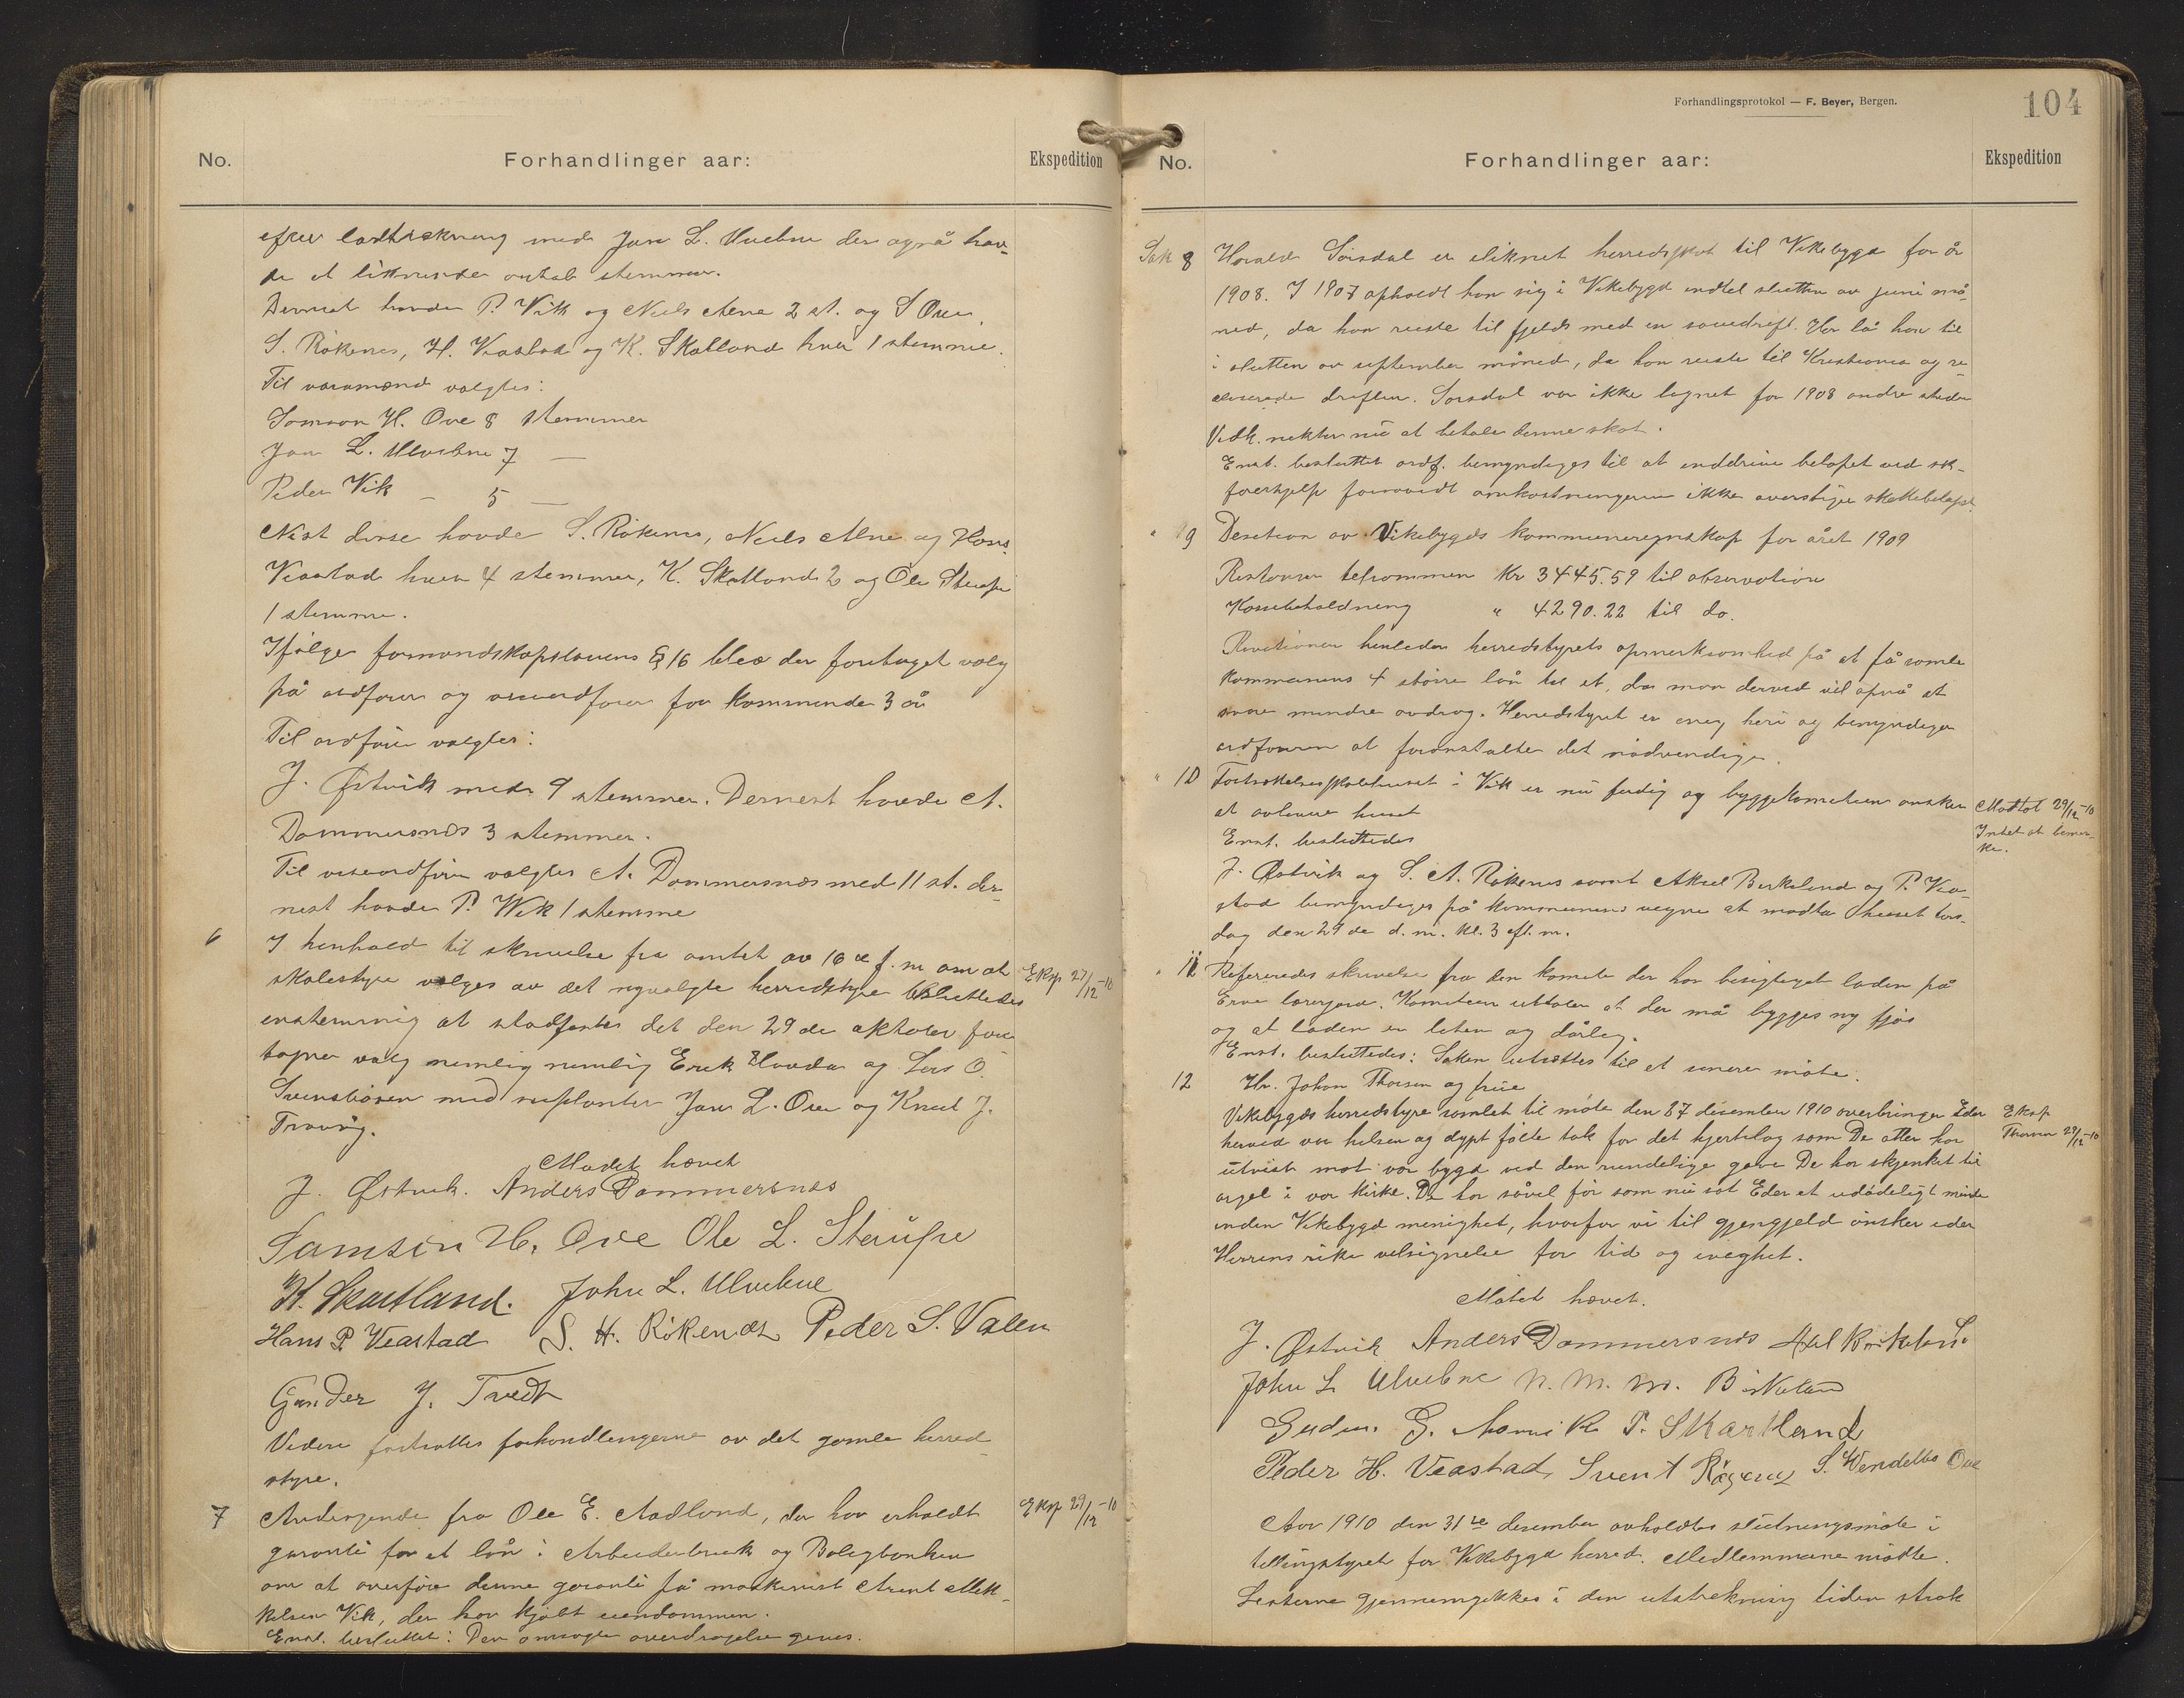 No.
Forhandlinger aar:
Ekspedition
efter lodtrækning med Jon L. Ulvebne der også hav-
de et litnende antal stemmer.
Dernæst havde P. Vik og Niels Alne 2 st. og S Ove,
S. Rökenes, H. Veastad og K. Skatland hver 1 stemme.
Til varamænd valgtes:
Samson H. Ove 8 stemmer
Jon L. Ulvebne 7 —
Peder Vik — 5 —
Næst disse havde S. Rökenes, Niels Alne og Hans
Veastad hver 4 stemmer, K. Skatland 2 og Ole Sterupe
1 stemme.
Ifölge formandskapslovens § 16 blev der foretaget valg
på ordförer og viseordförer for kommende 3 år
Til ordförer valgtes:
J. Østvik med 9 stemmer. Dernest havde A.
Dommersnes 3 stemmer.
Til viseordförer valgtes A. Dommersnes med 11 st. der-
nest havde P. Wik 1 stemme
6
I henhold til skrivelse fra amtet av 16 de f. m om at
Eksp 27/12 -10
skolestyre velges av det nyvalgte herredstyre besluttedes
enstemmig at stadfæste det den 29 de oktober fore
tagne valg nemlig nemlig Erik Hovda og Lars O.
Svensböen med suplanter Jon L. Ove og Knut J.
Travåg.
Mødet hævet
J. Østvik. Anders Dommersnes
Samson H. Ove Ole L. Sterupe
K. Skartland. John L. Ulvebne
Hans P. Veastad S. H. Rökenes Peder S. Valen
Gunder J. Tvedt
Videre fortsattes forhandlingerne av det gamle herred-
styre.
7
Andragende fra Ole E. Aadland, der har erholdt
Eksp 29/12 -10
garanti for et lån i Arbeiderbruk og Boligbanken
om at overföre denne garanti på maskinist Arent Mik-
kelsen Vik, der har kjöbt eiendommen.
Enst. besluttet: Den ansøgte overdragelse gives.
Forhandlingsprotokol — F. Beyer, Bergen.
104
No.
Forhandlinger aar:
Ekspedition
Sak 8
Harald Sörsdal er iliknet herredsskat til Vikebygd for år
1908. I 1907 opholdt han sig i Vikebygd indtil slutten av juni må-
ned, da han reiste til fjelds med en sauedrift. Her lå han til
i slutten av september måned, da han reiste til Kristiania og re-
aliserede driften. Sörsdal var ikke lignet for 1908 andre steder
Vedk. nekter nu at betale denne skat.
Enst. besluttet ordf. bemyndiges til at inddrive belöpet ved sak-
förerhjelp forsavidt omkostningerne ikke overstiger skattebelöpet.
" 9
Desision av Vikebygds kommuneregnskap for året 1909
Restanser tilsammen Kr 3445.59 til observation
Kassebeholdning " 4290.22 til do.
Revisionen henleder herredstyrets opmerksomhed på at få samle
kommunens 4 större lån til et, da man derved vil opnå at
svare mindre avdrag. Herredstyret er enig heri og bemyndiger
ordföreren at foranstalte det nödvendige.
" 10
Fortsættelsesskolehuset i Vik er nu ferdig og byggekomiteen önsker
Mottat 29/12 -10
Intet at bemer-
ke.
at avlevere huset
Enst. besluttedes
J. Østvik og S. A. Rökenes samt Aksel Birkeland og P. Vea-
stad bemyndiges på kommunens vegne at modta huset tors-
dag den 29 de d. m. kl. 3 eft. m.
" 11
Refereredes skrivelse fra den komite der har besigtiget laden på
Erve lærergard. Komiteen uttaler at der må bygges ny fjös
og at laden er liten og dårlig.
Enst. besluttedes: Saken utsættes til et senere möte.
12
Hr. Johan Thorsen og frue
Vikebygds herredstyre samlet til möte den 27 desember 1910 overbringer Eder
Eksp
Thorsen 29/12 -10
herved vor hilsen og dypt fölte tak for det hjertelag som De atter har
utvist mot vor bygd ved den rundelige gave De har skjenket til
orgel i vor kirke. De har såvel för som nu sat Eder et udödeligt minde
inden Vikebygd menighet, hvorfor vi til gjengjeld önsker eder
Herrens rike velsignelse for tid og evighet.
Mötet hævet.
J. Østvik Anders Dommersnes Axel Birkeland
John L Ulvebne N. M. M. Birkeland
G. P. Skartland
Peder H. Veastad, S. Wendelbo Ove
Aar 1910 den 31 te desember avholdtes slutningsmöte i
tellingstyret for Vikebygd herred. Medlemmene mötte.
Listerne gjennemgikkes i den utstrekning tiden strak